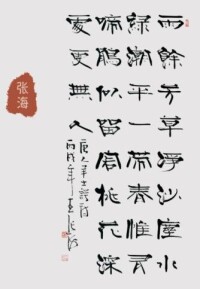 雨餘芳草淨沙塵水
綠灘平一帶春惟有
啼鵑似留客桃花深
處更無人
唐人
丙戌年
张海